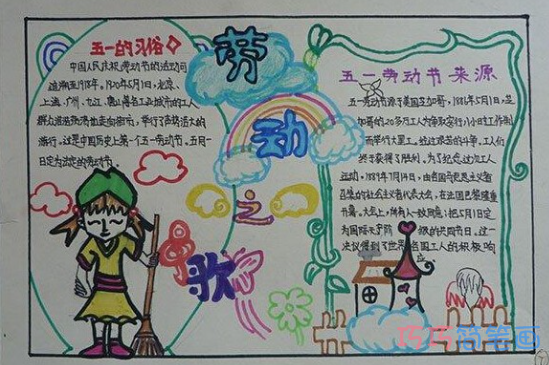 五一的习俗
中国人民庆祝劳动节的活动可
追溯至1918年。1920年5月1日,北京、
上海、广州、九江、唐山等各工业城市的工人
群众浩浩荡荡地走向街市,举行了声势浩大的
游行,这是中国历史上第一个五一劳动节,五月一
日定为法定的劳动节。
劳
动
之
歌
五一劳动节来源
五一劳动源于美国芝加哥,1886年5月1日,芝
加哥的20多万工人为争取实行八小时工作制
而举行大罢工。经过艰苦的斗争,工人们
终于取得了胜利,为了纪念这次工人
运动,1889年7月14日,由各国马克思主义者
召集的社会主义者代表大会,在法国巴黎隆重
开幕。大会上,所有人一致同意,把5月1日定
为国际无产阶级的共同节日。这一
决议得到了世界各国工人的积极响
应。
巧巧简笔画